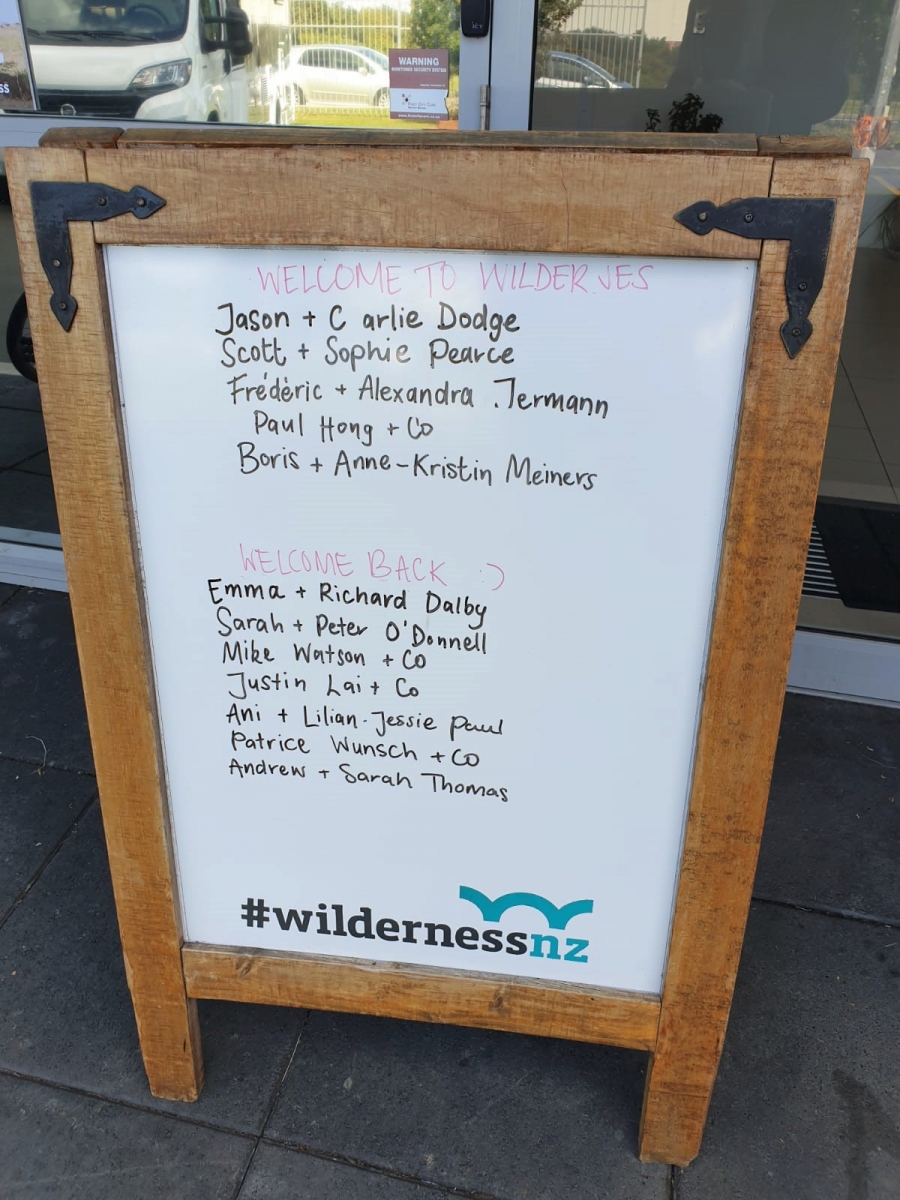 WARNING
MONITORED SECURITY SYSTEM
WELCOME TO WILDER JES
Jason + C arlie Dodge
Scott + Sophie Pearce
Frédéric + Alexandra Jermann
Paul Hong + Co
Boris + Anne-Kristin Meiners
WELCOME BACK :)
Emma + Richard Dalby
Sarah + Peter O'Donnell
Mike Watson + Co
Justin Lai + Co
Ani + Lilian-Jessie Paul
Patrice Wunsch + CO
Andrew + Sarah Thomas
#wildernessnz